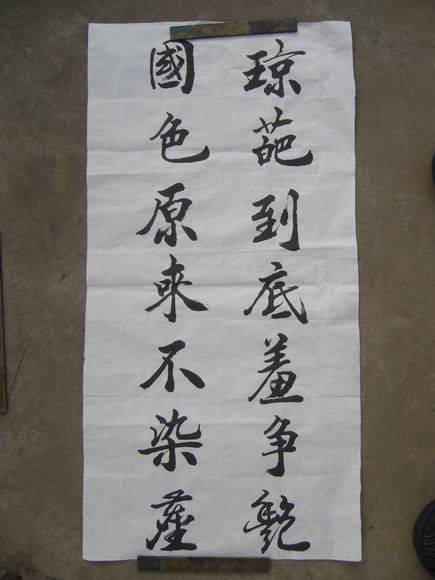 琼葩到底羞争艷
國色原來不染塵